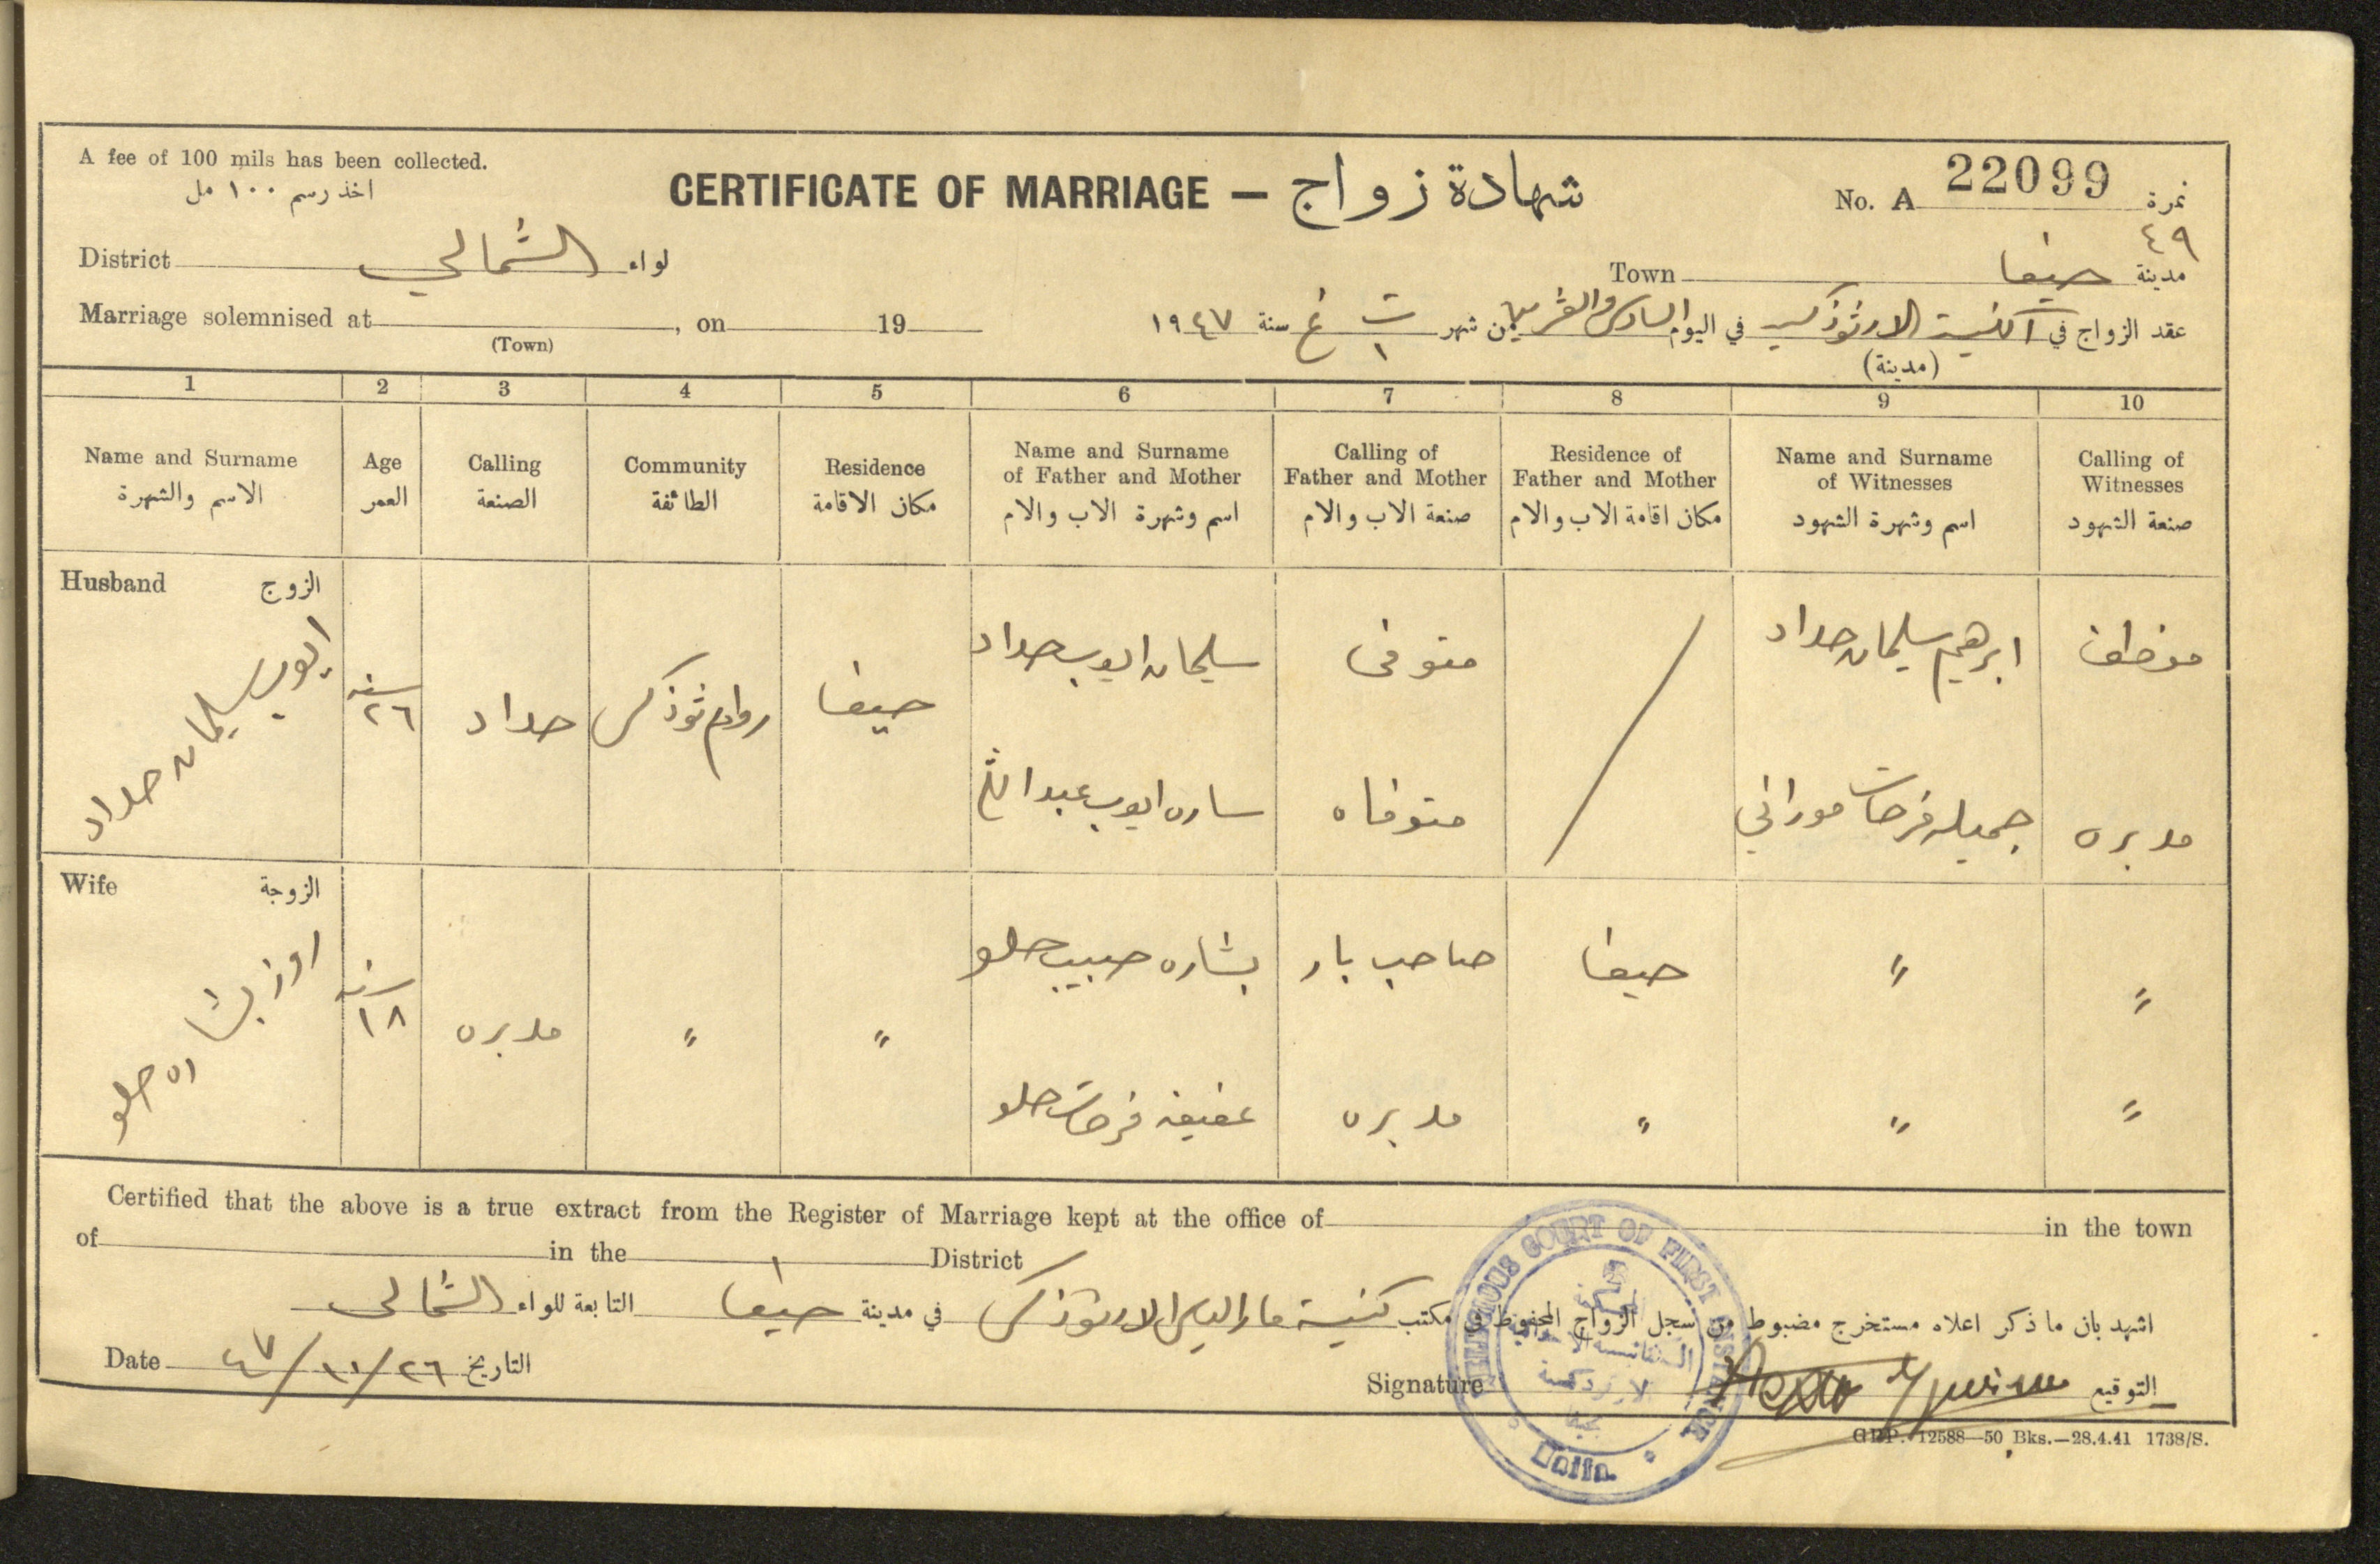 A fee of 100 mils has been collected.
اخذ رسم ١٠٠ مل
CERTIFICATE OF MARRIAGE — شهادة زواج
No. A 22099 نمرة
٤٩
District الشمالي لواء
Town حيفا مدينة
Marriage solemnised at , on 19
(Town)
عقد الزواج في الارثوذكسيه في اليوم السادس والعشرين من شهر ت ١ سنة ١٩٤٧
(مدينة)
1 2 3 4 5 6 7 8 9 10
Name and Surname Age Calling Community Residence Name and Surname of Father and Mother Calling of Father and Mother Residence of Father and Mother Name and Surname of Witnesses Calling of Witnesses
الاسم والشهرة العمر الصنعة الطائفة مكان الاقامة اسم وشهرة الاب والام صنعة الاب والام مكان اقامة الاب والام اسم وشهرة الشهود صنعة الشهود
Husband الزوج
ايوب سليمان حداد
سنه ٢٦
حداد
روم ارثوذكس
حيفا
سليمان ايوب حداد
متوفى
ابرهيم سليمان حداد
موظف
ساره ايوب عبدالله
متوفاه
جميله فرحات موراني
مدبره
Wife الزوجة
روز بشاره حلو
سنه ١٨
مدبره
"
"
بشاره حبيب حلو
صاحب بار
حيفا
"
"
عفيفه فرحات حلو
مدبره
"
"
"
Certified that the above is a true extract from the Register of Marriage kept at the office of in the town
of in the District
اشهد بان ما ذكر اعلاه مستخرج مضبوط من سجل الزواج المحفوظ في مكتب كنيسة مار الياس الارثوذكس في مدينة حيفا التابعة للواء الشمالي
Date ٤٧/١١/٢٦ التاريخ
Signature التوقيع
RELIGIOUS COURT OF FIRST INSTANCE
Haifa
G.P.P. 12588—50 Bks.—28.4.41 1738/S.